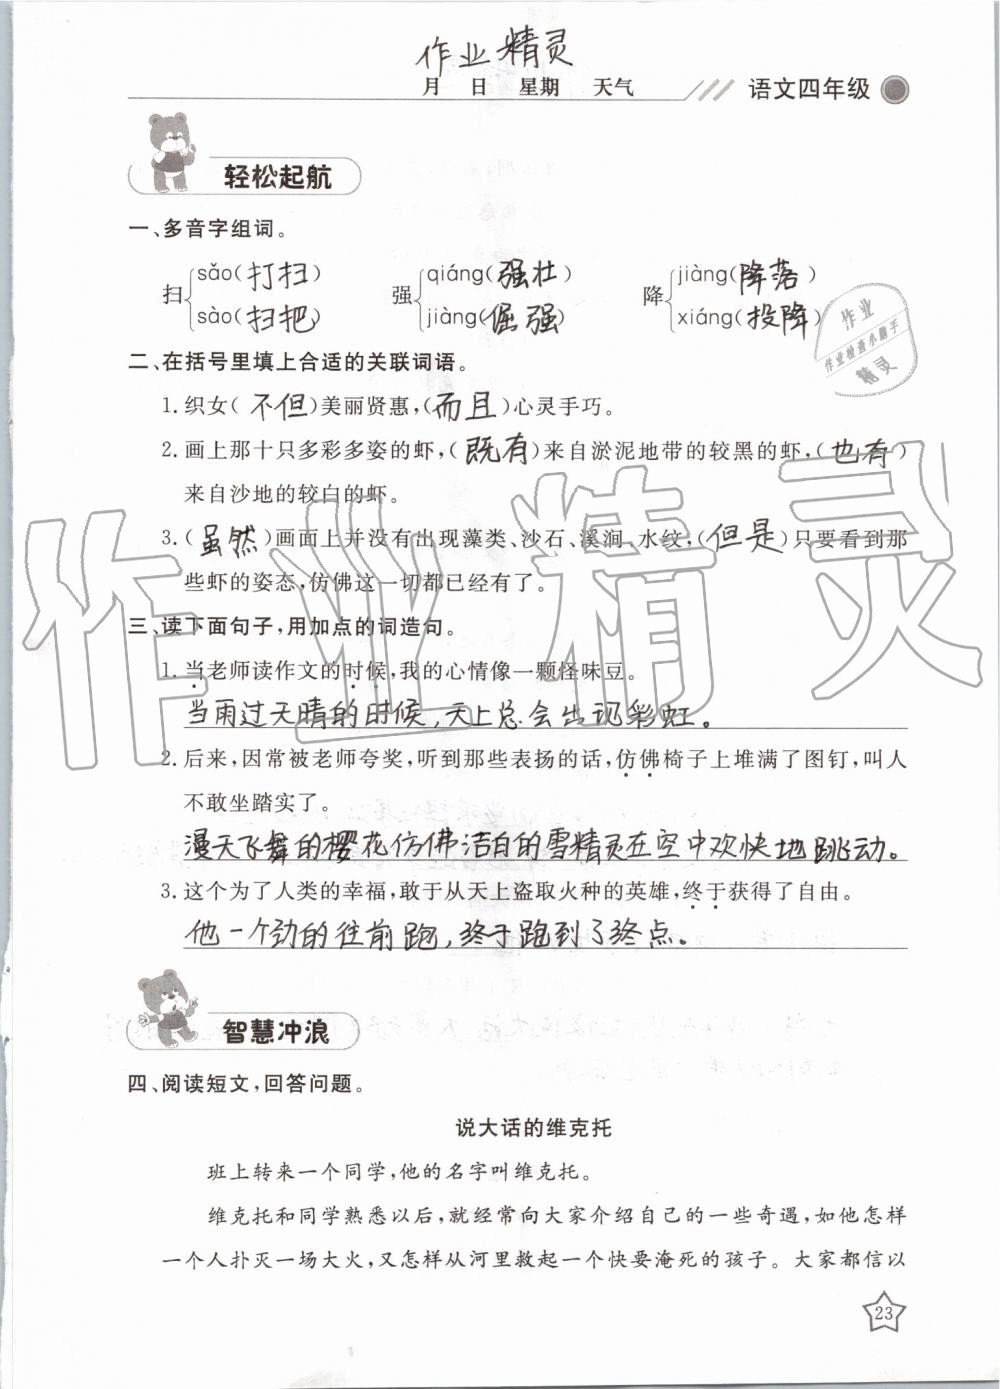 作业精灵
月 日 星期 天气
语文四年级
轻松起航
一、多音字组词。
扫 sǎo(打扫) 强 qiáng(强壮) 降 jiàng(降落)
sào(扫把) jiàng(倔强) xiáng(投降)
作业
作业检查小助手
精灵
二、在括号里填上合适的关联词语。
1.织女(不但)美丽贤惠,(而且)心灵手巧。
2.画上那十只多彩多姿的虾,(既有)来自淤泥地带的较黑的虾,(也有)
来自沙地的较白的虾。
3.(虽然)画面上并没有出现藻类、沙石、溪涧、水纹,(但是)只要看到那
些虾的姿态,仿佛这一切都已经有了。
作业精灵
三、读下面句子,用加点的词造句。
1.当老师读作文的时候,我的心情像一颗怪味豆。
当雨过天晴的时候,天上总会出现彩虹。
2.后来,因常被老师夸奖,听到那些表扬的话,仿佛椅子上堆满了图钉,叫人
不敢坐踏实了。
漫天飞舞的樱花仿佛洁白的雪精灵在空中欢快地跳动。
3.这个为了人类的幸福,敢于从天上盗取火种的英雄,终于获得了自由。
他一个劲的往前跑,终于跑到了终点。
智慧冲浪
四、阅读短文,回答问题。
说大话的维克托
班上转来一个同学,他的名字叫维克托。
维克托和同学熟悉以后,就经常向大家介绍自己的一些奇遇,如他怎样
一个人扑灭一场大火,又怎样从河里救起一个快要淹死的孩子。大家都信以
23